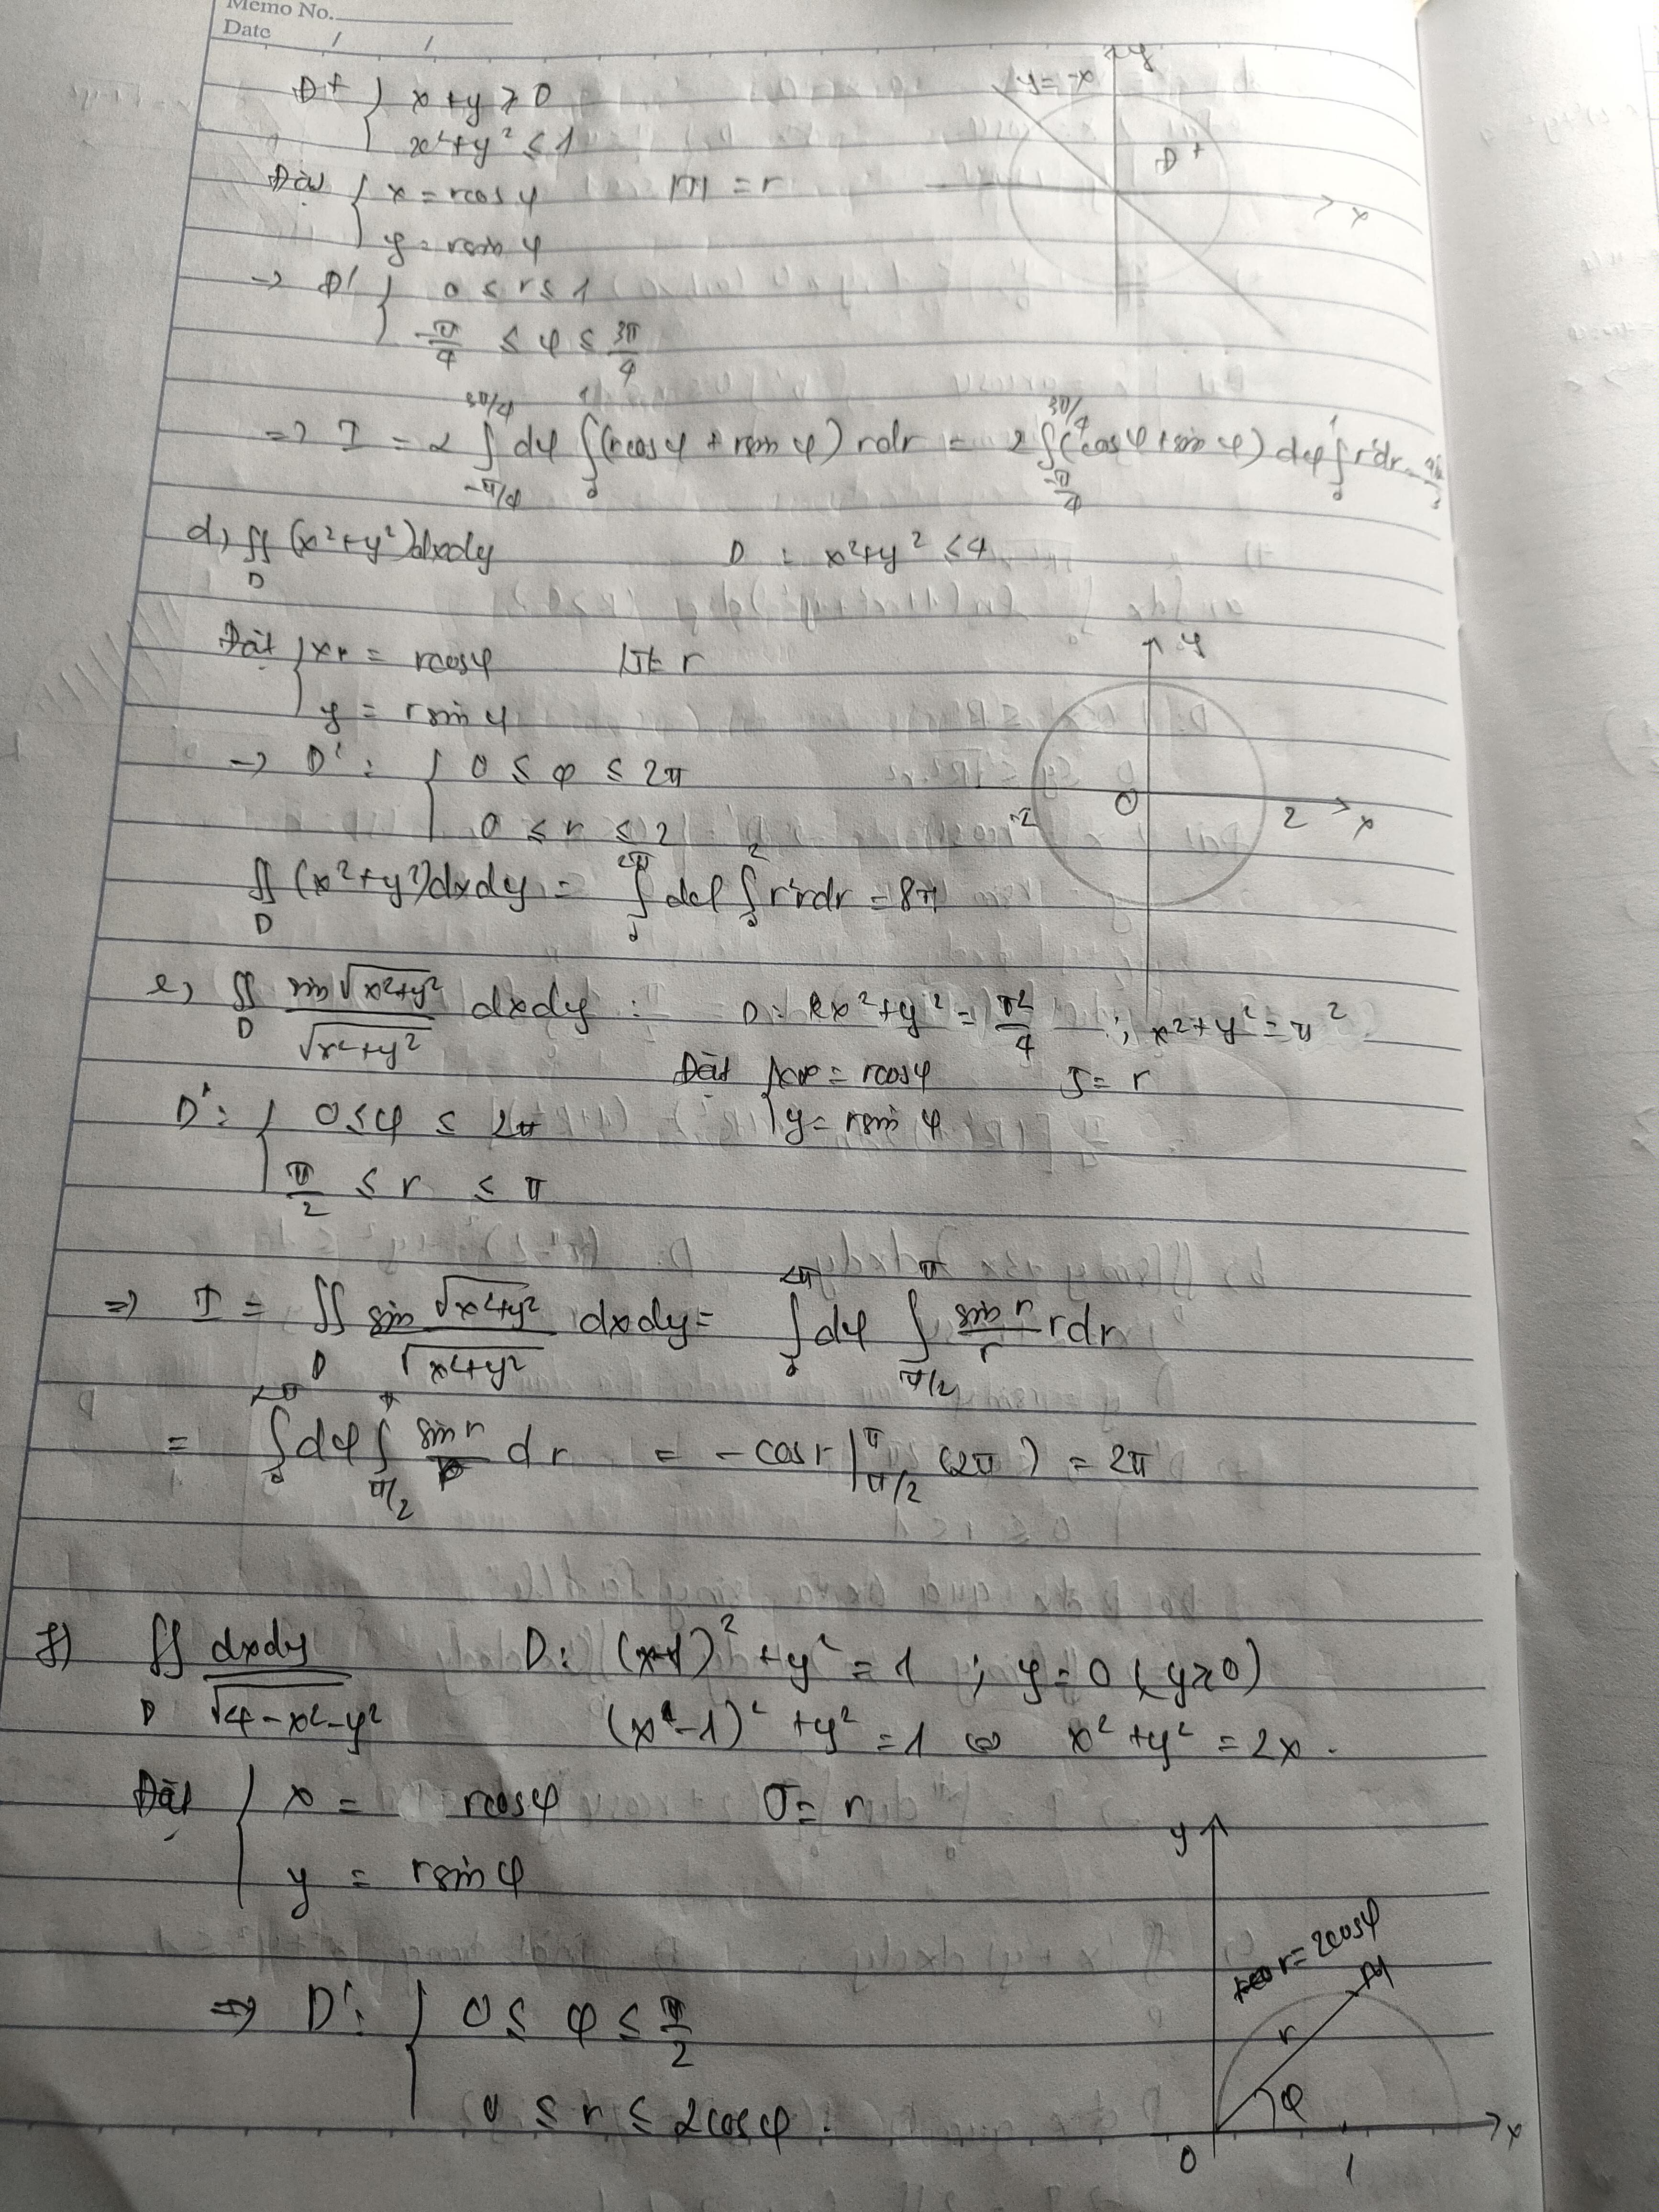 Memo No.
Date / /
D+ { x + y ≥ 0
x² + y² ≤ 1
y = -x
y
D+
x
Đặt { x = rcosφ |J| = r
y = rsinφ
→ D' { 0 ≤ r ≤ 1
-π/4 ≤ φ ≤ 3π/4
=> I = 2 ∫_{-π/4}^{3π/4} dφ ∫_0^1 (rcosφ + rsinφ) rdr = 2 ∫_{-π/4}^{3π/4} (cosφ + sinφ) dφ ∫_0^1 r²dr =
d) ∬_D (x² + y²)dxdy D : x² + y² ≤ 4
Đặt { x = rcosφ |J| = r
y = rsinφ
→ D' : { 0 ≤ φ ≤ 2π
0 ≤ r ≤ 2
y
-2 O 2 x
∬_D (x² + y²)dxdy = ∫_0^{2π} dφ ∫_0^2 r²rdr = 8π
e) ∬_D sin√(x²+y²) / √(x²+y²) dxdy : D: x² + y² = π²/4 ; x² + y² = π²
Đặt { x = rcosφ J = r
y = rsinφ
D' : { 0 ≤ φ ≤ 2π
π/2 ≤ r ≤ π
=> I = ∬_D sin √(x²+y²) / √(x²+y²) dxdy = ∫_0^{2π} dφ ∫_{π/2}^π sin r / r rdr
= ∫_0^{2π} dφ ∫_{π/2}^π sin r dr = -cos r |_{π/2}^π (2π) = 2π
f) ∬_D dxdy / √(4-x²-y²) D: (x-1)² + y² = 1 ; y = 0 (y ≥ 0)
(x-1)² + y² = 1 ⇔ x² + y² = 2x .
Đặt { x = rcosφ J = r
y = rsinφ
=> D' : { 0 ≤ φ ≤ π/2
0 ≤ r ≤ 2cosφ .
y
r = 2cosφ
M
r
φ
0 1 x